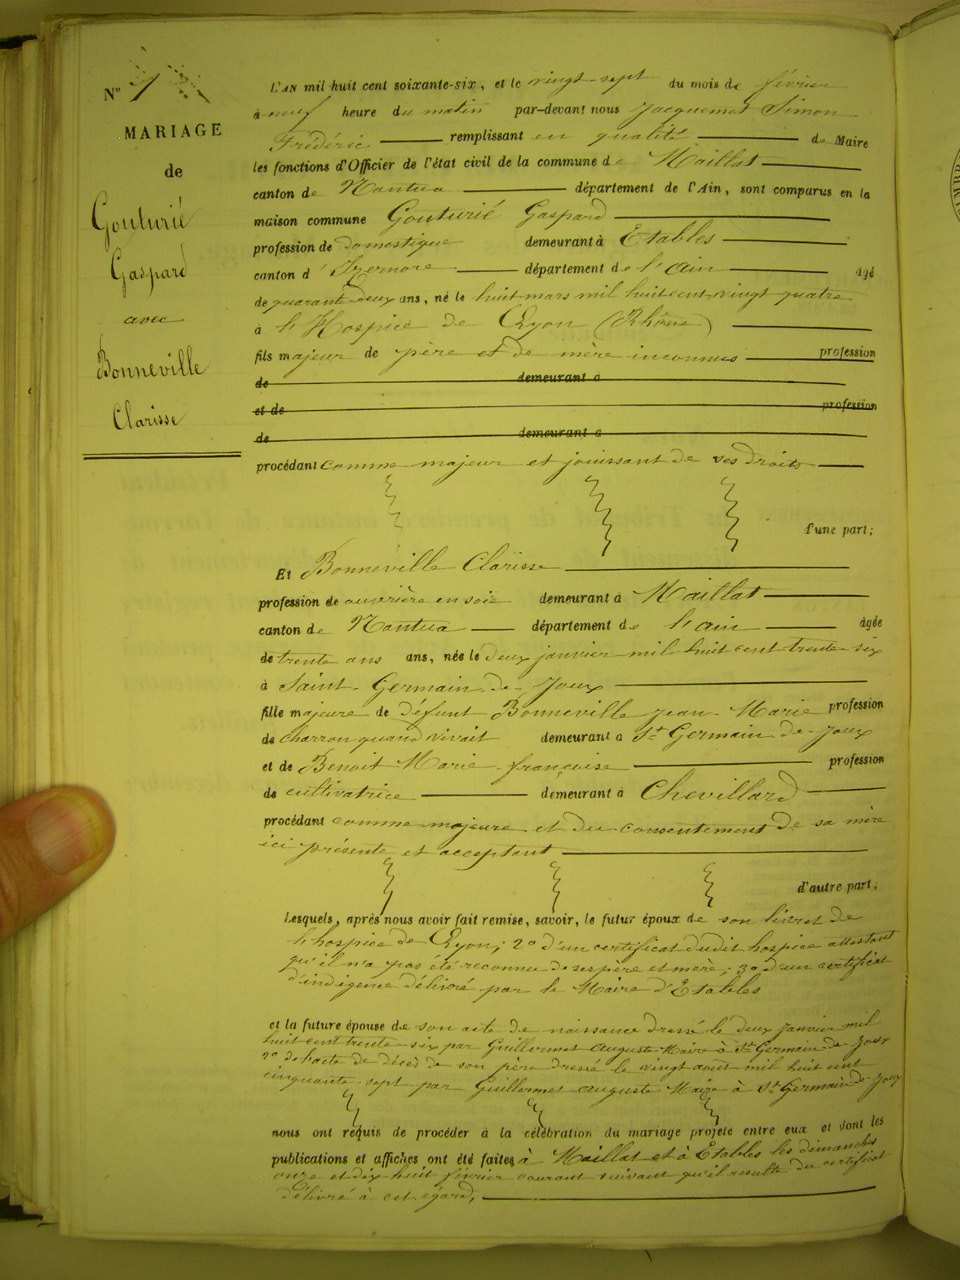 N° 1
MARIAGE
de
Gouturié
Gaspard
avec
Bonneville
Clarisse
L'AN mil huit cent soixante-six, et le vingt-sept du mois de février
à neuf heure du matin par-devant nous Jacquemet Simon
Frédéric remplissant en qualité de Maire
les fonctions d'Officier de l'état civil de la commune de Maillat
canton de Nantua département de l'Ain, sont comparus en la
maison commune Gouturié Gaspard
profession de domestique demeurant à Etables
canton d'Izernore département de l'ain âgé
de quarante deux ans, né le huit mars mil huit cent vingt quatre
à l'Hospice de Lyon (Rhône)
fils majeur de père et de mère inconnus profession
de demeurant à
et de profession
de demeurant à
procédant comme majeur et jouissant de ses droits
d'une part;
Et Bonneville Clarisse
profession de ouvrière en soie demeurant à Maillat
canton de Nantua département de l'ain âgée
de trente ans ans, née le deux janvier mil huit cent trente six
à Saint-Germain-de-Joux
fille majeure de défunt Bonneville Jean-Marie profession
de charron quand vivait demeurant à St Germain-de-Joux
et de Benoit Marie-françoise profession
de cultivatrice demeurant à Chevillard
procédant comme majeure et du consentement de sa mère
ici présente et acceptant
d'autre part;
Lesquels, après nous avoir fait remise, savoir, le futur époux de son livret de
l'hospice de Lyon; 2° d'un certificat dudit hospice attestant
qu'il n'a pas été reconnu de ses père et mère; 3° d'un certificat
d'indigence délivré par le Maire d'Etables
et la future épouse de son acte de naissance dressé le deux janvier mil
huit cent trente-six par Guillermet Auguste Maire à St Germain-de-Joux
2° de l'acte de décès de son père dressé le vingt aout mil huit cent
cinquante-sept par Guillermet Auguste Maire à St Germain-de-Joux
nous ont requis de procéder à la célébration du mariage projeté entre eux et dont les
publications et affiches ont été faites à Maillat et à Etables les dimanches
onze et dix huit février courant suivant qu'il résulte du certificat
délivré à cet égard,